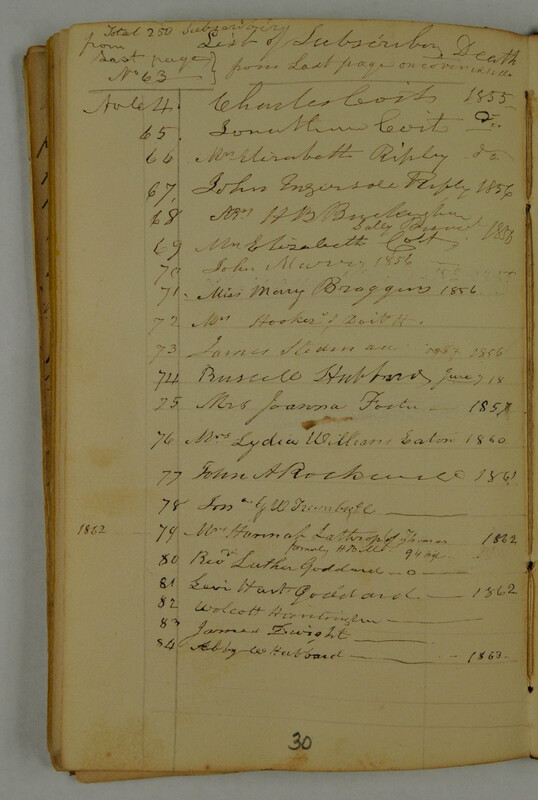 Total 250 Subscribers
from List of Subscribers Death
Last page
No 63 from Last page
Note 4. Charles Coit 1855
65. Jonathan Coit Do
66 Mrs Elizabeth Ripley do
67, John Ingersole Ripley 1856
68 Mrs H B Buckingham
69 Mrs Elizabeth Coit 1856
70 John 1856
71. Miss Mary Braggins 1856
72 Mrs Hooker
73 James Stedman 1856
74 Russell Hubbard June 7 18
75 Mrs Joanna Foster 1857
76 Mrs Lydia Williams Eaton 1860
77 John A Rockwell 1861
78 G W Trumbull
1862 79 Mrs Hannah Lathrop of 1862
80 Revd Luther Goddard
81 Levi Hart Goddard 1862
82 Wolcott Huntington
83 James Dwight
84 Abby W Hubbard 1863
30